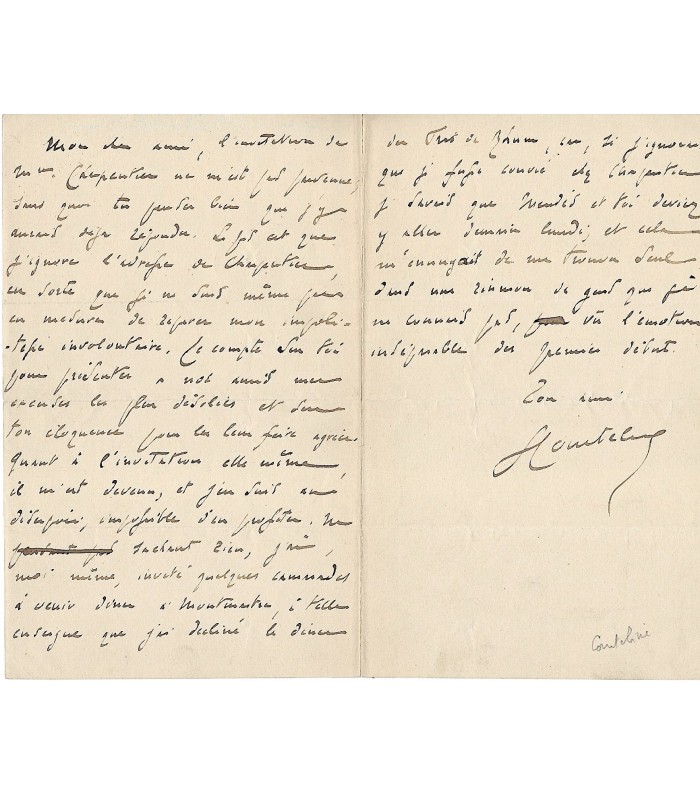 Mon cher ami, l'invitation de
Mme Charpentier ne m'est pas parvenue,
sans quoi tu penses bien que j'y
aurais déjà répondu. Le pis est que
j'ignore l'adresse de Charpentier,
en sorte que je ne suis même pas
en mesure de réparer mon impoli-
tesse involontaire. Je compte sur toi
pour présenter à nos amis mes
excuses les plus désolées et sur
ton éloquence pour les leur faire agréer.
Quant à l'invitation elle même,
il m'est devenu, et j'en suis au
désespoir, impossible d'en profiter. Ne
sachant rien, j'ai,
moi même, invité quelques camarades
à venir dîner à Montmartre, à telle
enseigne que j'ai décliné le dîner
du
que je fusse convié chez Charpentier
je savais que Mendès et toi deviez
y aller lundi, et cela
m'ennuyait de me trouver seul
dans une réunion de gens que je
ne connais pas, vu l'émotion
inséparable des premiers débuts.
Ton ami
GCourteline
Courteline